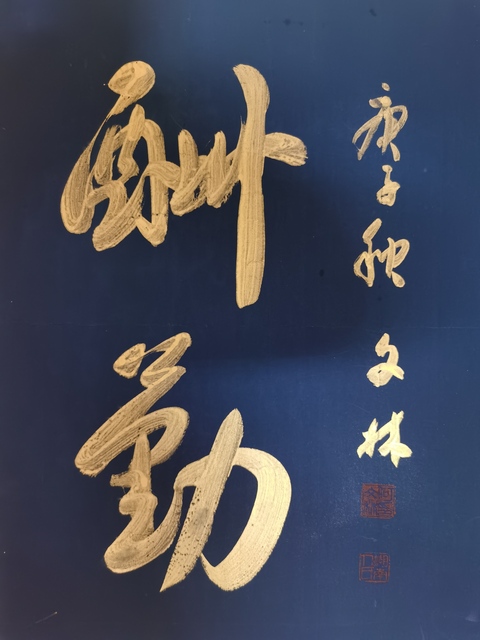 酬勤
庚子秋 文林